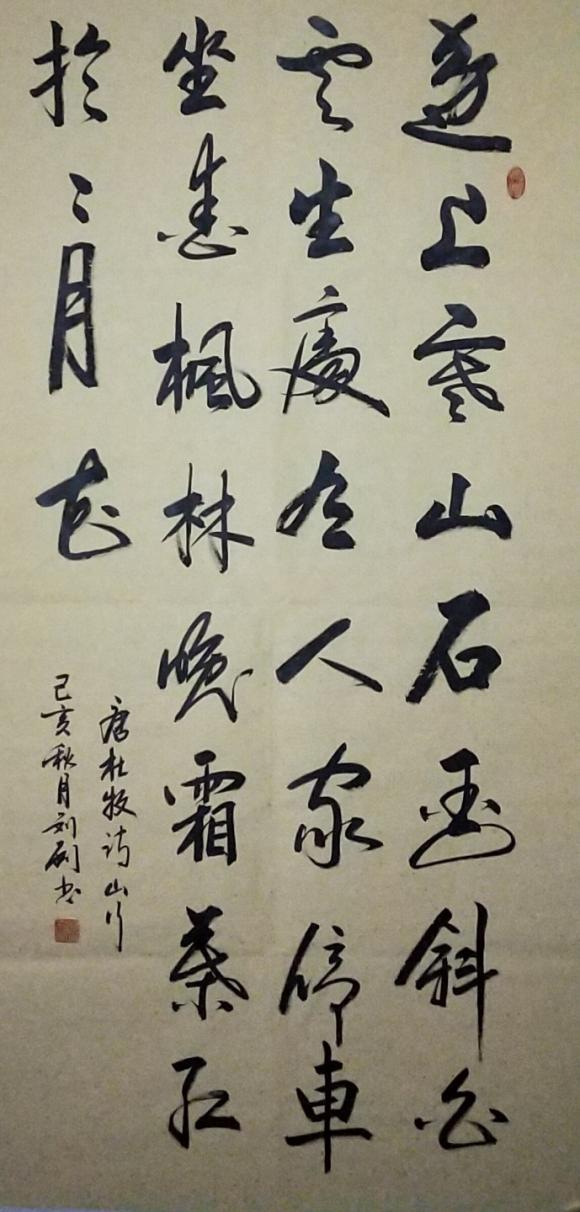 遠上寒山石徑斜白
雲生處人家停車
坐愛楓林晚霜葉紅
於二月花
唐杜牧诗山行
己亥秋月刘剛书